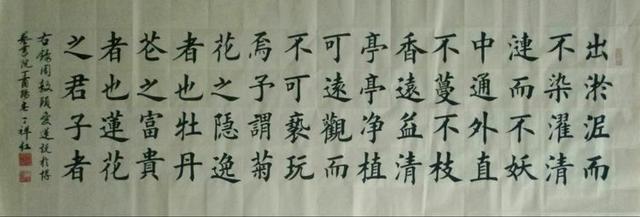 出淤泥而
不染濯清
漣而不妖
中通外直
不蔓不枝
香遠益清
亭亭净植
可遠觀而
不可褻玩
焉予謂菊
花之隱逸
者也牡丹
花之富貴
者也蓮花
之君子者
右錄周敦頤愛蓮説於博
藝書院丁酉